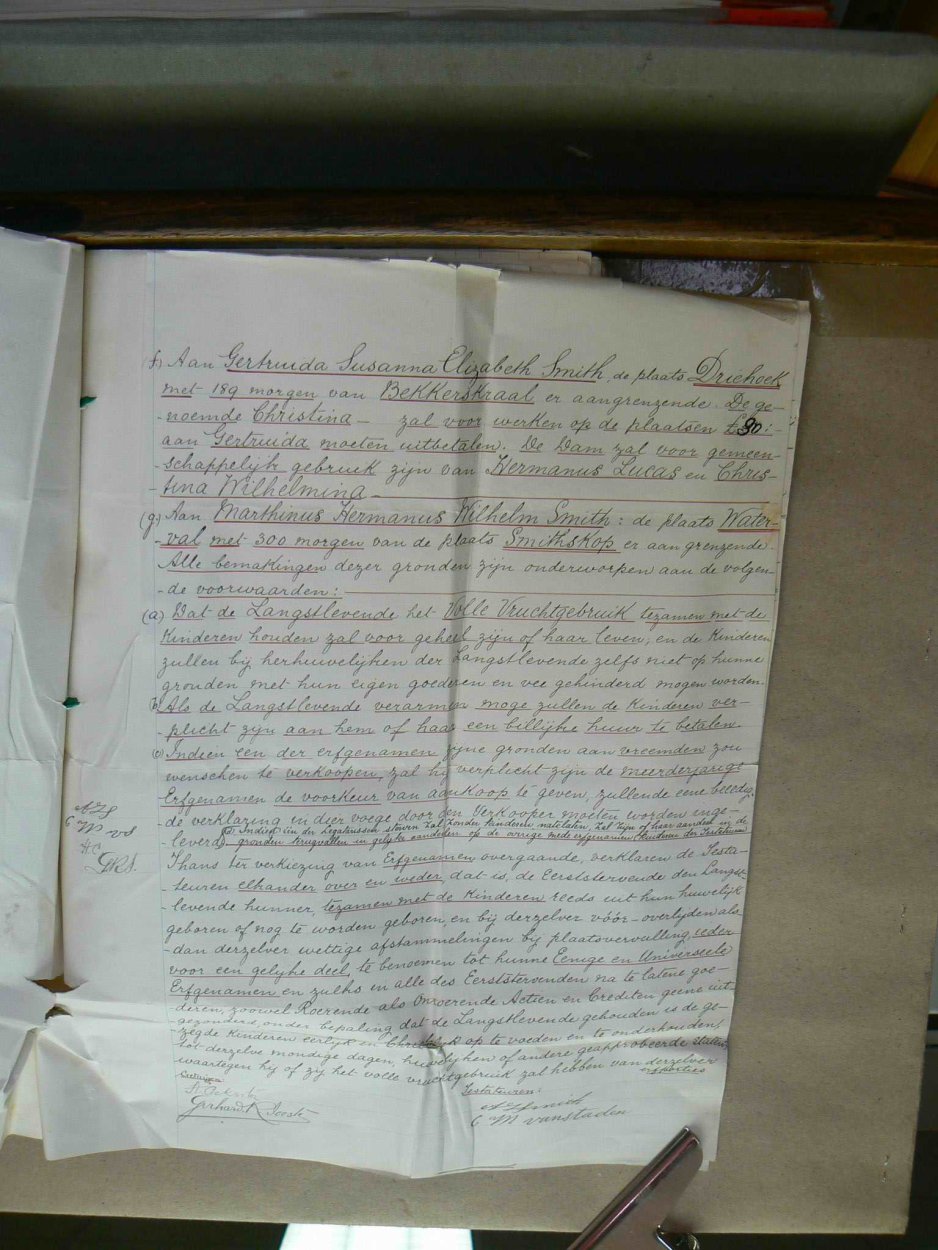 (f) Aan Gertruida Susanna Elizabeth Smith, de plaats Driehoek
met 189 morgen van Bekkerskraal er aangrenzende. De ge-
-noemde Christina — zal voor werken op de plaatsen £90:-
aan Gertruida moeten uitbetalen. De Dam zal voor gemeen-
-schappelijk gebruik zijn van Hermanus Lucas en Chris-
-tina Wilhelmina
(g) Aan Marthinus Hermanus Wilhelm Smith: de plaats Water-
-val met 300 morgen van de plaats Smithskop er aangrenzende.
Alle bemakingen dezer gronden zijn onderworpen aan de volgen-
-de voorwaarden:
(a) Dat de Langstlevende het Volle Vruchtgebruik tezamen met de
Kinderen houden zal voor geheel zijn of haar leven; en de Kinderen
zullen bij herhuwelijken der Langstlevende zelfs niet op hunne
gronden met hun eigen goederen en vee gehinderd mogen worden.
(b) Als de Langstlevende verarmen moge zullen de Kinderen ver-
-plicht zijn aan hem of haar een billijke huur te betalen.
(c) Indien een der erfgenamen zyne gronden aan vreemden zou
wenschen te verkoopen, zal hij verplecht zijn de meerderjarige
Erfgenamen de voorkeur van aankoop te geven, zullende eene beëedig-
de verklaring in dier voege door den Verkooper moeten worden inge-
leverd. (d) Indien een der Legatarissen sterven zal zonder kinderen natelaten, zal zijn of haar aandeel in de
gronden terugvallen in gelyke aandeelen op de overige mede erfgenamen Kinderen der Testateuren
Thans ter verkiezing van Erfgenamen overgaande, verklaren de Testa-
-teuren elkander over en weder, dat is, de Eerststervende den Langst-
-levende hunner, tezamen met de Kinderen reeds uit hun huwelijk
geboren of nog te worden geboren en bij derzelver vóór-overlyden als
dan derzelver wettige afstammelingen bij plaatsvervulling, ieder
voor een gelyke deel, te benoemen tot hunne Eenige en Universeele
Erfgenamen en zulks in alle des Eerststervenden na te latene goe-
-deren, zoowel Roerende als Onroerende Actien en Crediten geene uit-
gezonderd, onder bepaling dat de Langstlevende gehouden is de ge-
-zegde Kinderen eerlyk en Christelyk op te voeden en te onderhouden,
tot derzelve mondige dagen, huwelijken of andere geapprobeerde staten
waartegen hy of zij het volle vruchtgebruik zal hebben van derzelver
erfporties
Getuigen:
Gerhardt Jooste
Testateuren:
C M vanstaden
H.C.